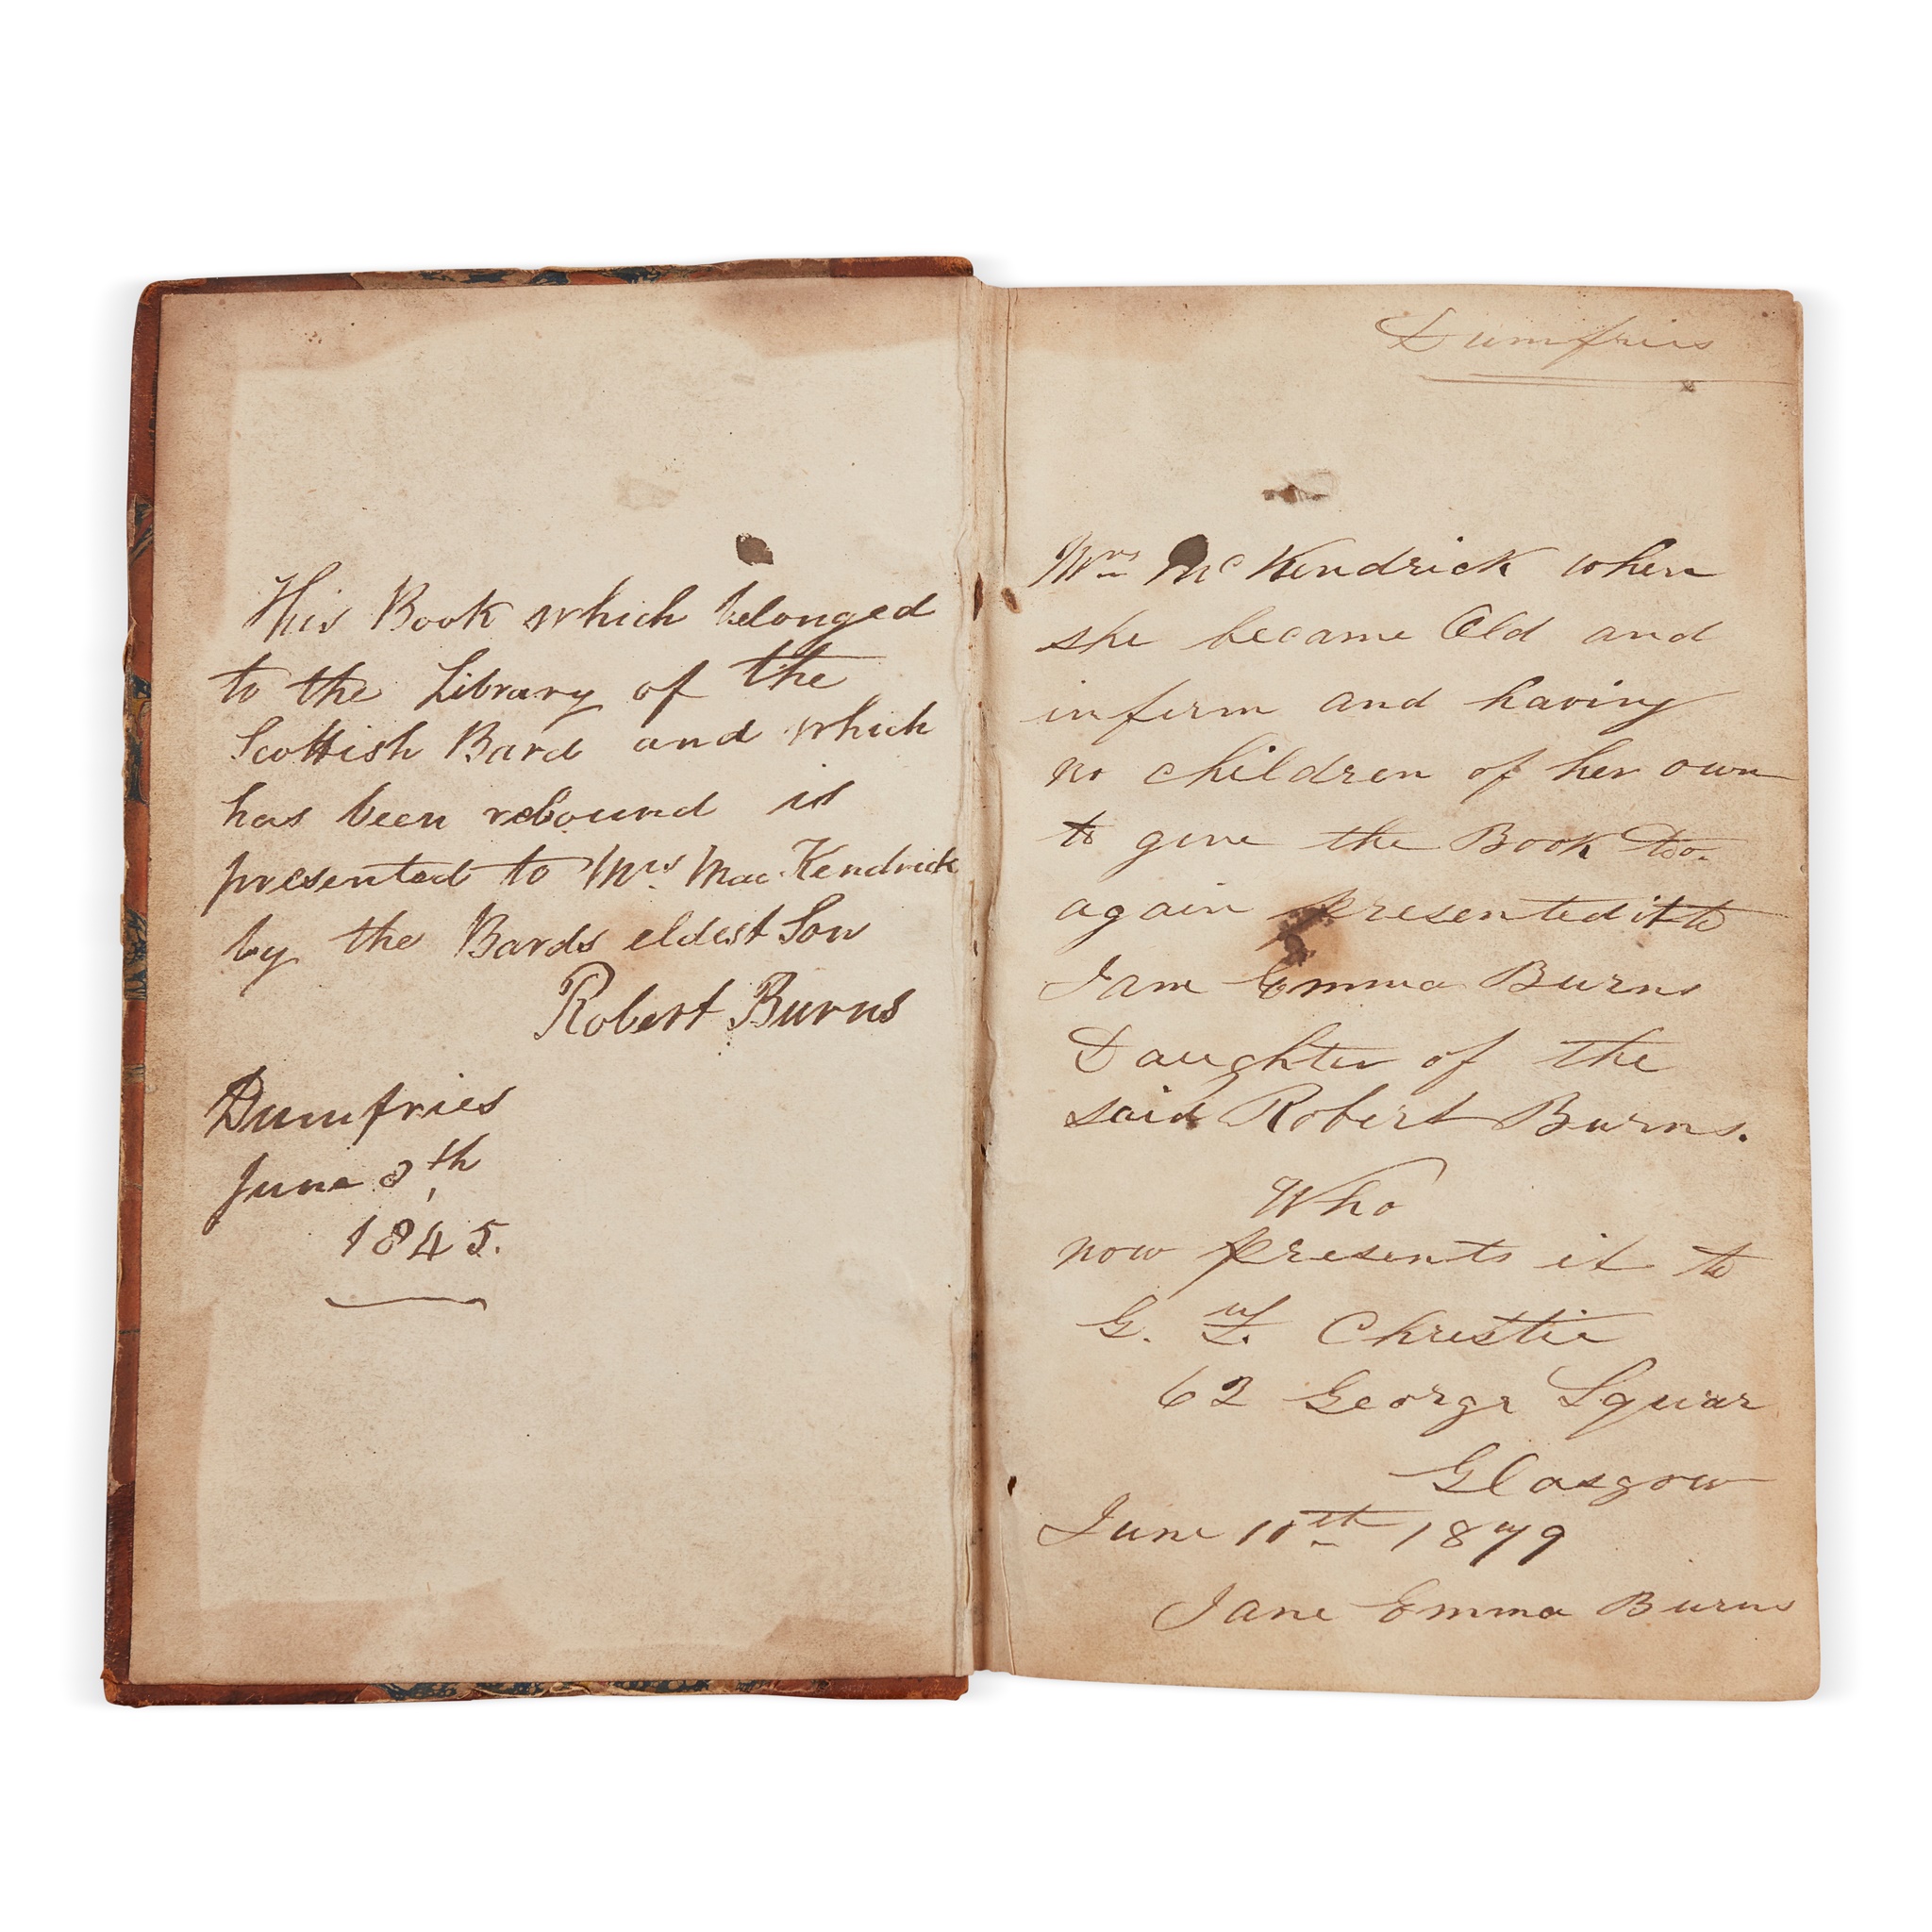 This Book which belonged
to the Library of the
Scottish Bard and which
has been rebound is
presented to Mrs. Mac Kendrick
by the Bards eldest Son
Robert Burns
Dumfries
June 8th,
1845.
Dumfries
Mrs McKendrick when
she became Old and
infirm and having
no children of her own
to give the Book too
again presented it to
Jane Emma Burns
Daughter of the
said Robert Burns.
Who
now presents it to
G. Christie
62 George Squar
Glasgow
June 11th 1879
Jane Emma Burns